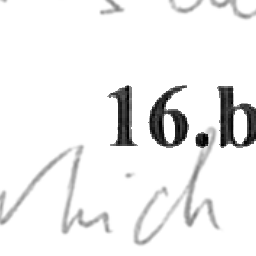 16.b
which